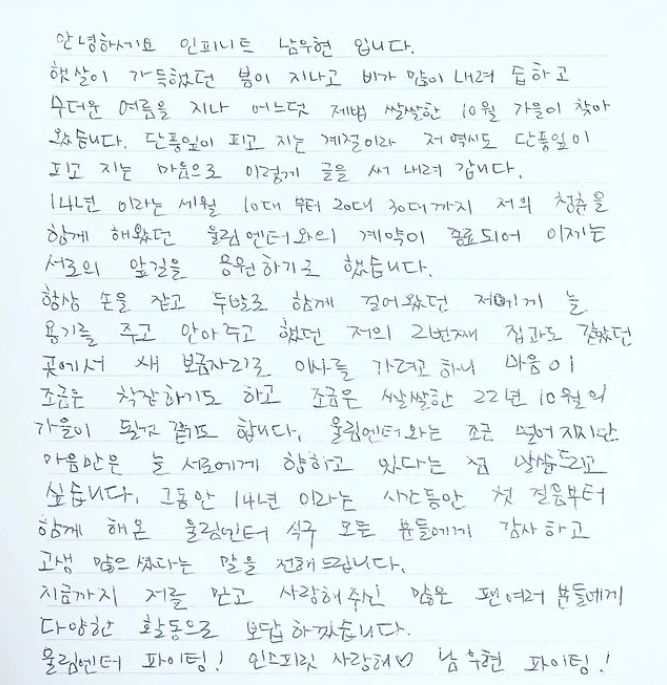 안녕하세요 인피니트 남우현 입니다.
햇살이 가득했던 봄이 지나고 비가 많이 내려 습하고
무더운 여름을 지나 어느덧 제법 쌀쌀한 10월 가을이 찾아
왔습니다. 단풍잎이 피고 지는 계절이라 저 역시도 단풍잎이
피고 지는 마음으로 이렇게 글을 써 내려 갑니다.
14년 이라는 세월 10대 부터 20대 30대까지 저의 청춘을
함께 해왔던 울림엔터와의 계약이 종료되어 이제는
서로의 앞길을 응원하기로 했습니다.
항상 손을 잡고 두발로 함께 걸어왔던 저에게 늘
용기를 주고 안아주고 했던 저의 2번째 집과도 같았던
곳에서 새 보금자리로 이사를 가려고 하니 마음이
조금은 착잡하기도 하고 조금은 쌀쌀한 22년 10월의
가을이 될것 같기도 합니다. 울림엔터와는 조금 떨어지지만
마음만은 늘 서로에게 향하고 있다는 점 말씀드리고
싶습니다. 그동안 14년 이라는 시간동안 첫 걸음부터
함께 해온 울림엔터 식구 모든 분들에게 감사하고
고생 많으셨다는 말을 전해드립니다.
지금까지 저를 믿고 사랑해주신 많은 팬여러분들에게
다양한 활동으로 보답하겠습니다.
울림엔터 파이팅! 인스피릿 사랑해♡ 남우현 파이팅!